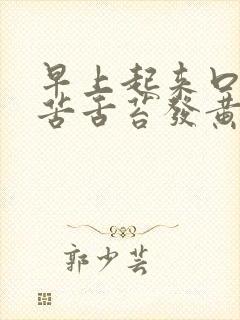 早上起来口
苦舌苔發黄
郭少芸